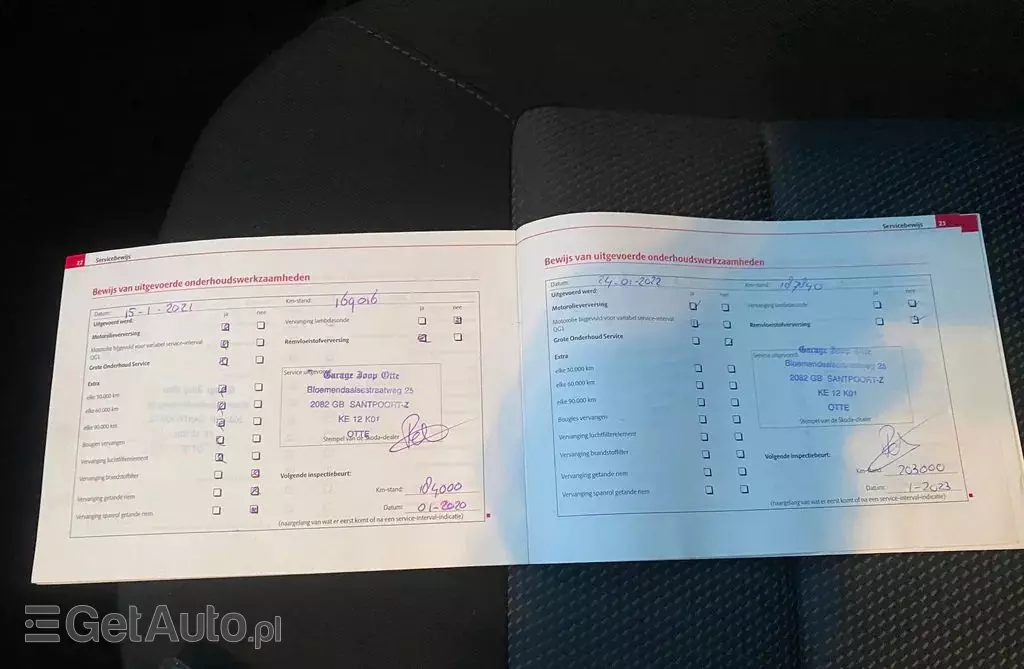 22 Servicebewijs
Bewijs van uitgevoerde onderhoudswerkzaamheden
Datum: 15-1-2021 Km-stand: 169016
Uitgevoerd werd: ja nee ja nee
Motorolieverversing
Vervanging lambdasonde
Motorolie bijgevuld voor variabel service-interval
QG1
Remvloeistofverversing
Grote Onderhoud Service
Extra
elke 30.000 km
elke 60.000 km
elke 90.000 km
Bougies vervangen
Vervanging luchtfilterelement
Vervanging brandstoffilter
Vervanging getande riem
Vervanging spanrol getande riem
Service uitgevoerd
Garage Joop Otte
Bloemendaalsestraatweg 25
2082 GB SANTPOORT-Z
KE 12 K01
OTTE
Stempel van de Skoda-dealer
Volgende inspectiebeurt:
Km-stand: 184000
Datum: 01-2020
(naargelang van wat er eerst komt of na een service-interval-indicatie)
Servicebewijs 23
Bewijs van uitgevoerde onderhoudswerkzaamheden
Datum: 24-01-2022 Km-stand:
Uitgevoerd werd: ja nee ja nee
Motorolieverversing
Vervanging lambdasonde
Motorolie bijgevuld voor variabel service-interval
QG1
Remvloeistofverversing
Grote Onderhoud Service
Extra
elke 30.000 km
elke 60.000 km
elke 90.000 km
Bougies vervangen
Vervanging luchtfilterelement
Vervanging brandstoffilter
Vervanging getande riem
Vervanging spanrol getande riem
Service uitgevoerd
Garage Joop Otte
Bloemendaalsestraatweg 25
2082 GB SANTPOORT-Z
KE 12 K01
OTTE
Stempel van de Skoda-dealer
Volgende inspectiebeurt:
Km-stand: 203000
Datum: 1-2023
(naargelang van wat er eerst komt of na een service-interval-indicatie)
GetAuto.pl